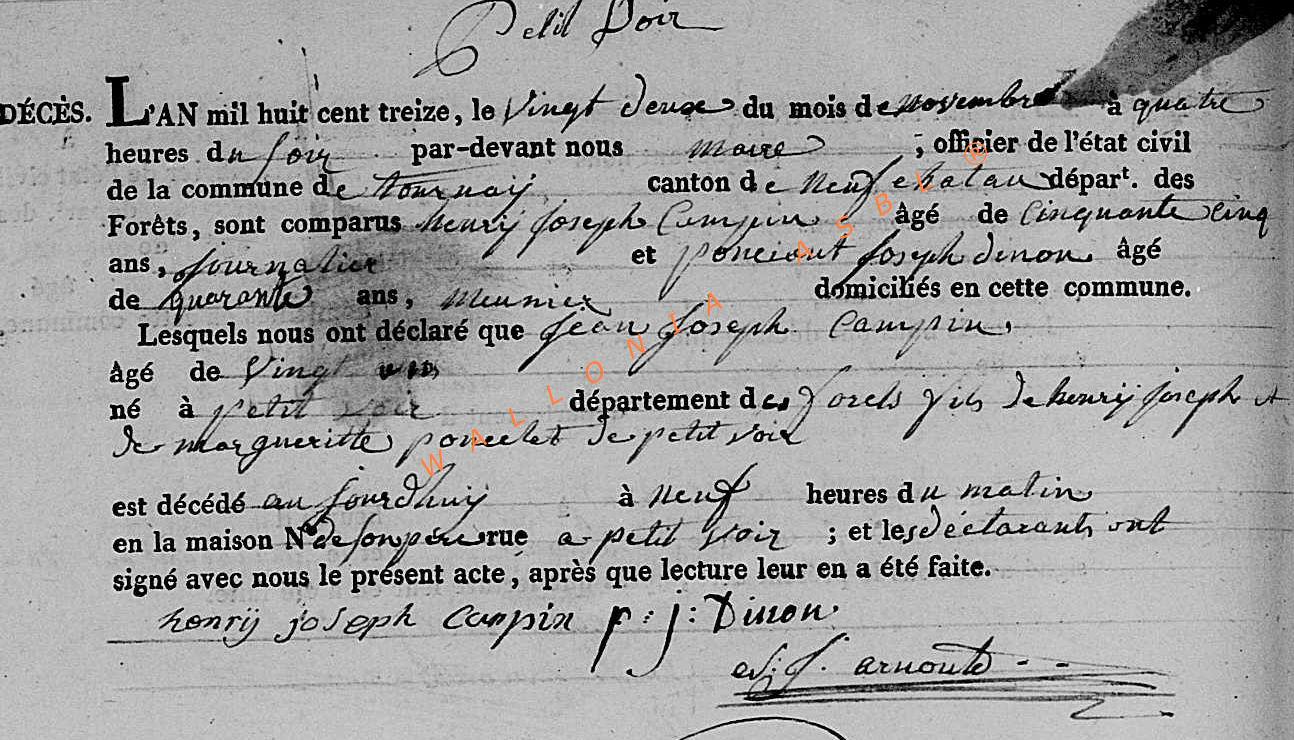 Petit Voir
DÉCÈS. L'AN mil huit cent treize, le Vingt deux du mois de novembre à quatre
heures du soir par-devant nous maire ; officier de l'état civil
de la commune de tournaÿ canton de Neufchatau départ. des
Forêts, sont comparus henrÿ joseph Campin âgé de Cinquante cinq
ans, journalier et ponciant joseph dinon âgé
de quarante ans, meunier domiciliés en cette commune.
Lesquels nous ont déclaré que jean joseph Campin,
âgé de Vingt
né à petit voir département des forets fils de henrÿ joseph et
de margueritte poncelet de petit voir
est décédé au jourdhuÿ à neuf heures du matin
en la maison N° de son père rue a petit Voir ; et les déclarants ont
signé avec nous le présent acte, après que lecture leur en a été faite.
henrÿ joseph Campin p: j: Dinon
arnould
WALLONIA ASBL ®